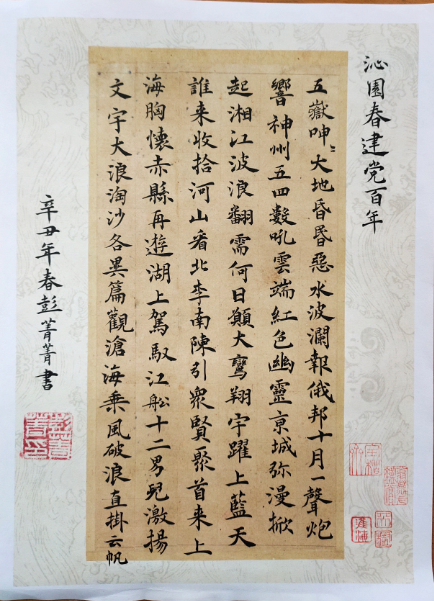 沁園春建党百年
五嶽呻ミ大地昏昏惡水波瀾報俄邦十月一聲炮
響神州五四數吼雲端紅色幽靈京城弥漫掀
起湘江波浪翻需何日顛大鸞翔宇躍上藍天
誰来收拾河山看北李南陳引衆賢聚首来上
海胸懷赤縣再遊湖上駕馭江舩十二男兒激揚
文字大浪淘沙各異篇觀滄海乗風破浪直掛云帆
辛丑年春彭菁菁書